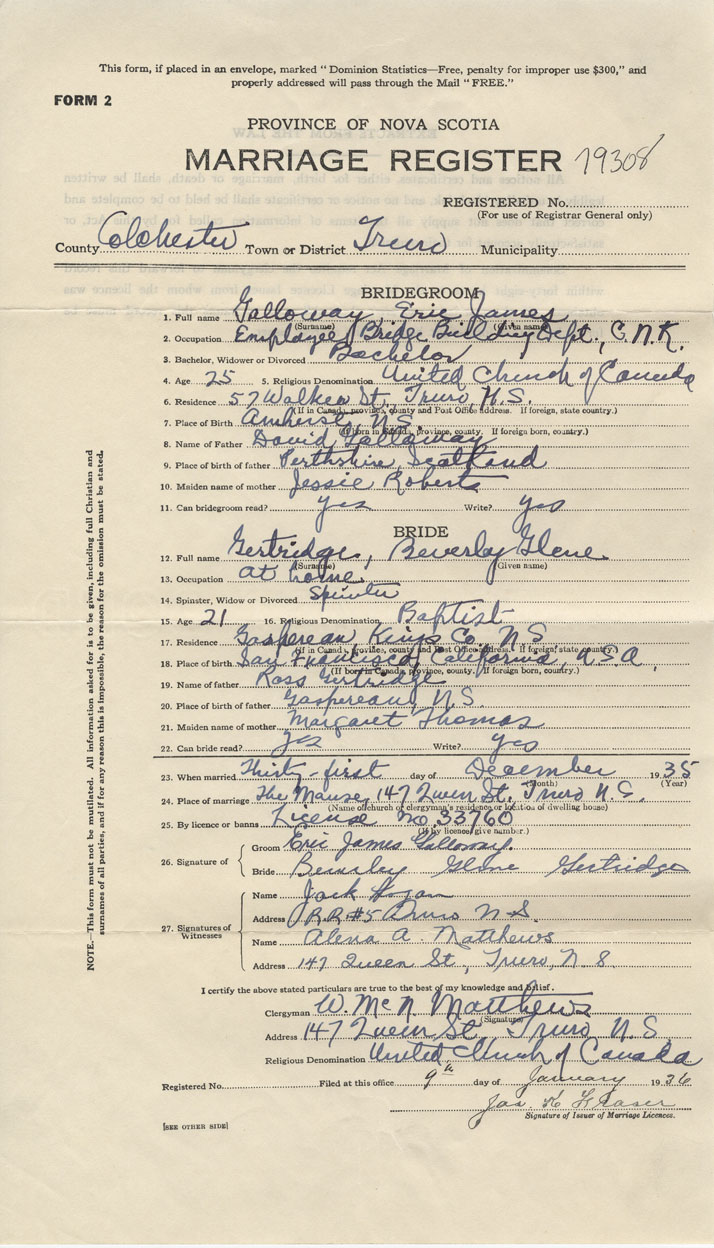 This form, if placed in an envelope, marked "Dominion Statistics—Free, penalty for improper use $300," and
properly addressed will pass through the Mail "FREE."
FORM 2
PROVINCE OF NOVA SCOTIA
MARRIAGE REGISTER 19308
REGISTERED No.
(For use of Registrar General only)
County Colchester Town or District Truro Municipality
BRIDEGROOM
1. Full name Galloway, Eric James
(Surname) (Given name)
2. Occupation Employee Bridge Building Dept., C.N.R.
3. Bachelor, Widower or Divorced Bachelor
4. Age 25 5. Religious Denomination United Church of Canada
6. Residence 57 Walker St, Truro N.S.
(If in Canada, province, county and Post Office address. If foreign, state country.)
7. Place of Birth Amherst, N.S.
(If born in Canada, province, county. If foreign born, country.)
8. Name of Father David Galloway
9. Place of birth of father Perthshire, Scotland
10. Maiden name of mother Jessie Roberts
11. Can bridegroom read? yes Write? yes
BRIDE
12. Full name Gertridge, Beverly Glene
(Surname) (Given name)
13. Occupation at home
14. Spinster, Widow or Divorced Spinster
15. Age 21 16. Religious Denomination Baptist
17. Residence Gaspereau, Kings Co., N.S
(If in Canada, province, county and Post Office address. If foreign, state country.)
18. Place of birth San Francisco, California, U.S.A,
(If born in Canada, province, county. If foreign born, country.)
19. Name of father Ross Gertridge
20. Place of birth of father Gaspereau, N.S.
21. Maiden name of mother Margaret Thomas
22. Can bride read? yes Write? yes
23. When married Thirty-first day of December 1935
(Month) (Year)
24. Place of marriage The Manse, 147 Queen St, Truro N.S.
(Name of church or clergyman's residence or location of dwelling house)
25. By licence or banns License No. 33760
(If by licence, give number.)
26. Signature of
Groom Eric James Galloway.
Bride Beverley Glene Gertridge
27. Signatures of Witnesses
Name Jack Logan
Address R.R.#5 Truro N.S.
Name Alena A. Matthews
Address 147 Queen St, Truro, N.S.
I certify the above stated particulars are true to the best of my knowledge and belief.
Clergyman W. McN. Matthews
(Signature)
Address 147 Queen St. Truro N.S
Religious Denomination United Church of Canada
Registered No. Filed at this office 9th day of January 1936
Jas. K Fraser
Signature of Issuer of Marriage Licences.
[SEE OTHER SIDE]
NOTE.—This form must not be mutilated. All information asked for is to be given, including full Christian and
surnames of all parties, and if for any reason this is impossible, the reason for the omission must be stated.